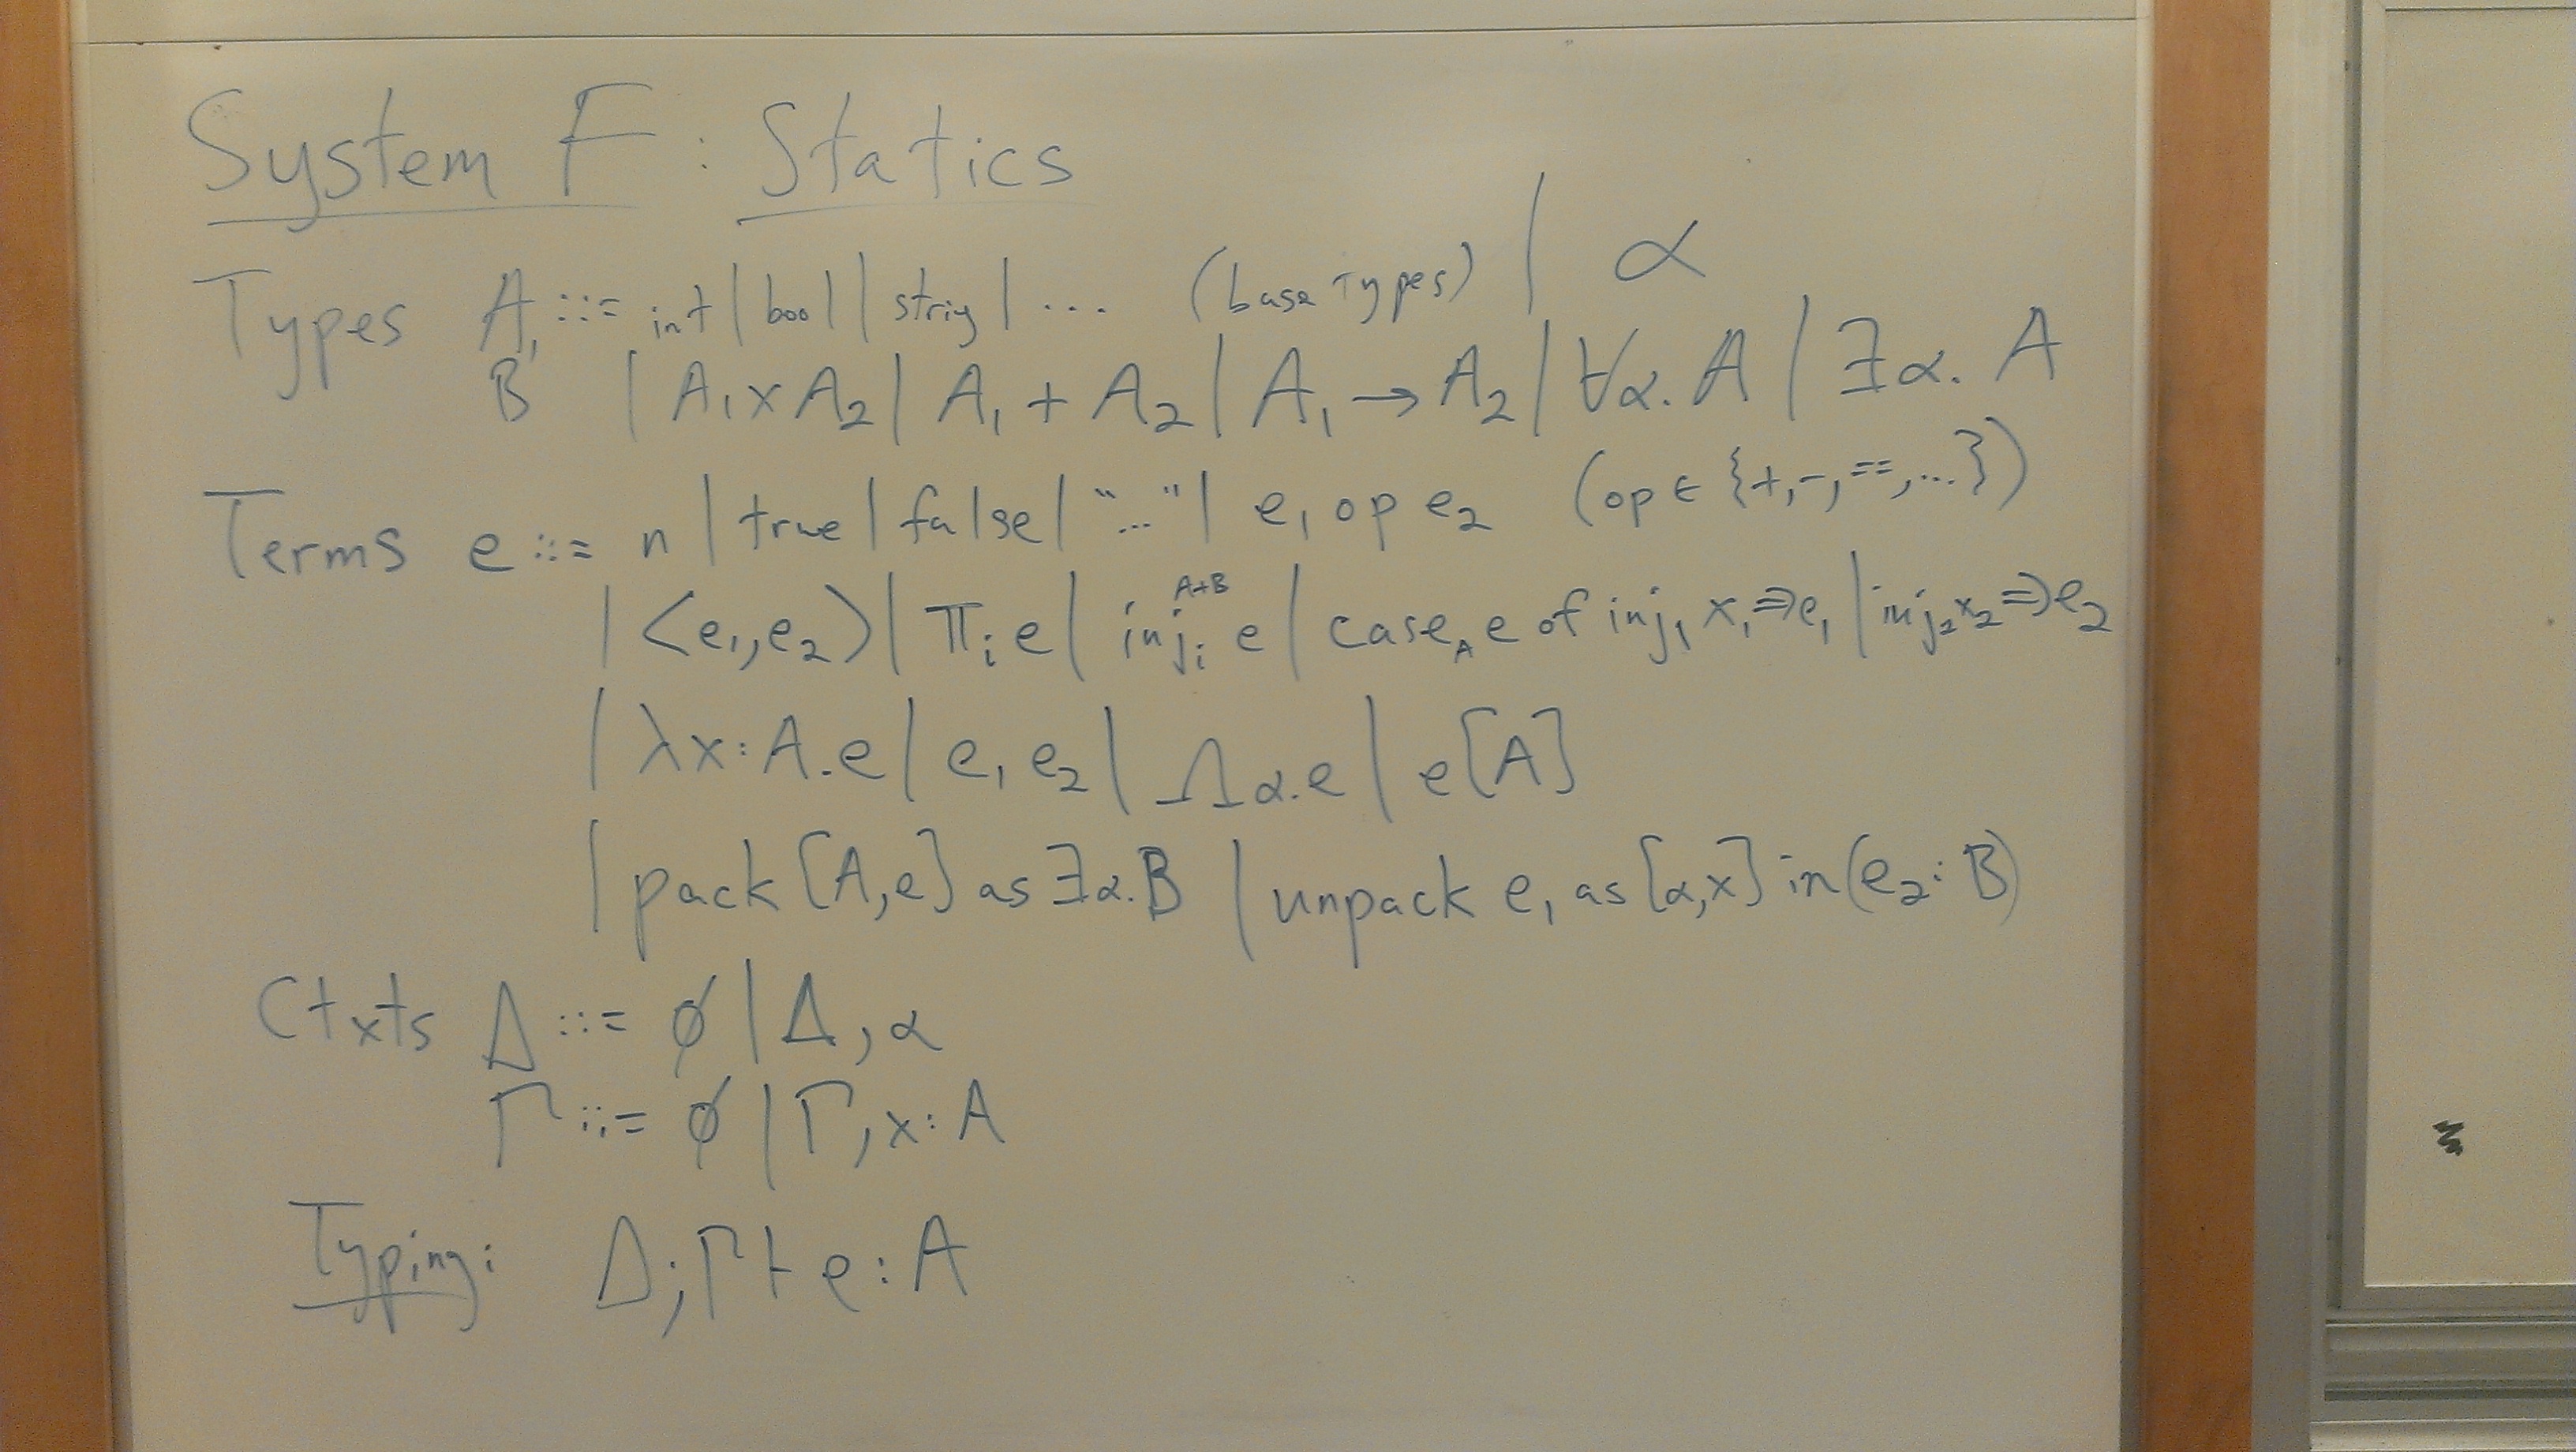 System F : Statics
Types A, ::= int | bool | string | ... (base types) | α
B | A₁ × A₂ | A₁ + A₂ | A₁ → A₂ | ∀α. A | ∃α. A
Terms e ::= n | true | false | "..." | e₁ op e₂ (op ∈ {+,-,==,...})
| <e₁,e₂> | πᵢ e | injᵢ^{A+B} e | case_A e of inj₁ x₁ ⇒ e₁ | inj₂ x₂ ⇒ e₂
| λx:A.e | e₁ e₂ | Λα.e | e[A]
| pack [A,e] as ∃α.B | unpack e₁ as [α,x] in (e₂: B)
Ctxts Δ ::= ∅ | Δ, α
Γ ::= ∅ | Γ, x: A
Typing: Δ;Γ ⊢ e : A